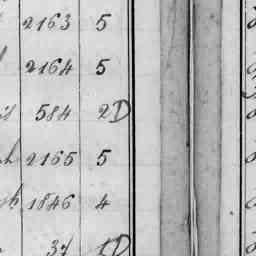 2163 5
2164 5
584 2D
2165 5
1846 4
37 1D